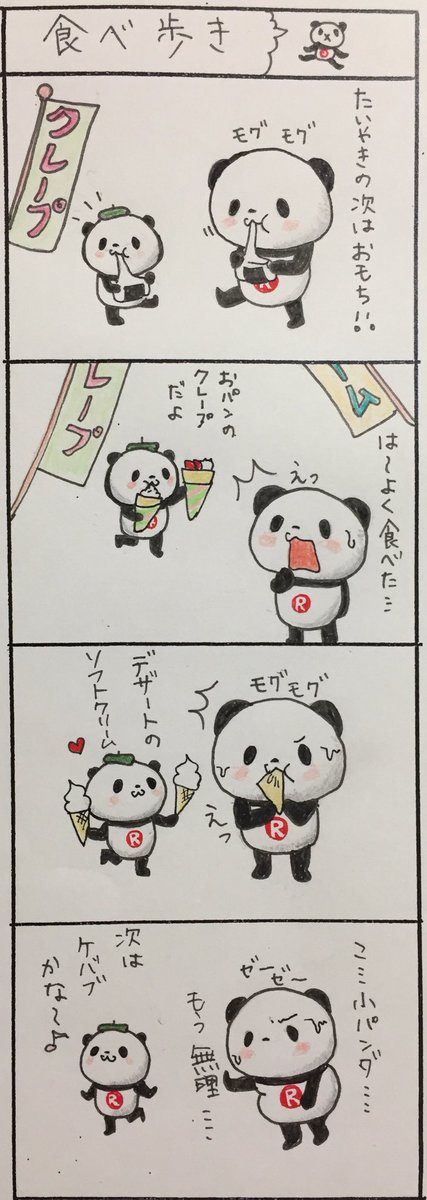 食べ歩き
たいやきの次はおもち!!
モグ モグ
クレープ
R
ーム
は〜よく食べた…
えっ
おパンの
クレープ
だよ
レープ
R
R
モグモグ
えっ
デザートの
ソフトクリーム
R
R
こ…小パンダ……
ゼーゼー
もう無理……
次は
ケバブ
かな〜♪
R
R